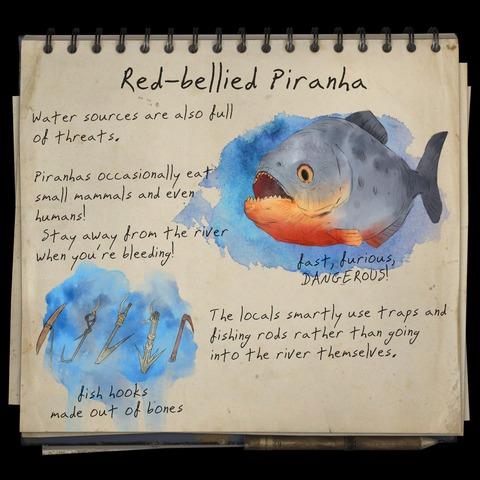 Red-bellied Piranha
Water sources are also full
of threats.
Piranhas occasionally eat
small mammals and even
humans!
Stay away from the river
when you're bleeding!
fast, furious,
DANGEROUS!
The locals smartly use traps and
fishing rods rather than going
into the river themselves.
fish hooks
made out of bones